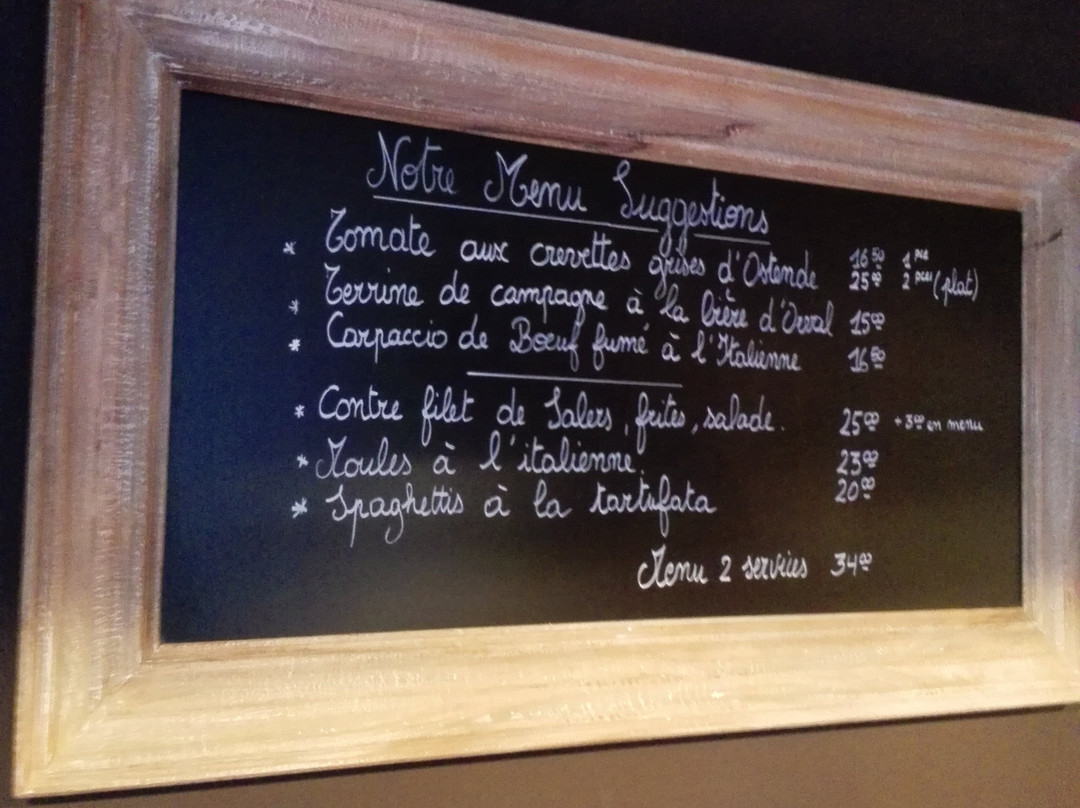 Notre Menu Suggestions
* Tomate aux crevettes grises d'Ostende 16 50 1 pce
25 00 2 pces (plat)
* Terrine de campagne à la bière d'Orval 15 00
* Carpaccio de Boeuf fumé à l'Italienne 16 50
* Contre filet de Salers, frites, salade. 25 00 + 3 00 en menu
* Moules à l'italienne. 23 00
* Spaghettis à la tartufata 20 00
Menu 2 services 34 00